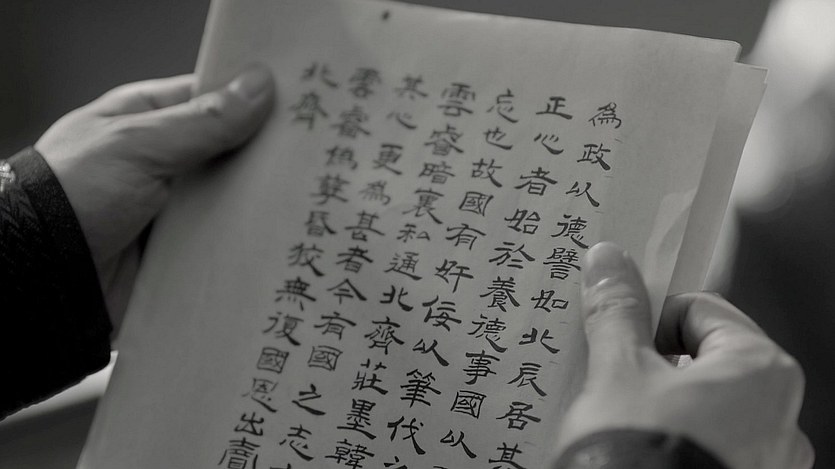 為政以德譬如北辰居其
正心者始於養德事國以
忘也故國有奸佞以筆伐之
雲睿暗裏私通北齊莊墨韓
其心更為甚者今有國之志
雲睿偽孽昏狡無復國恩出賣
北齊